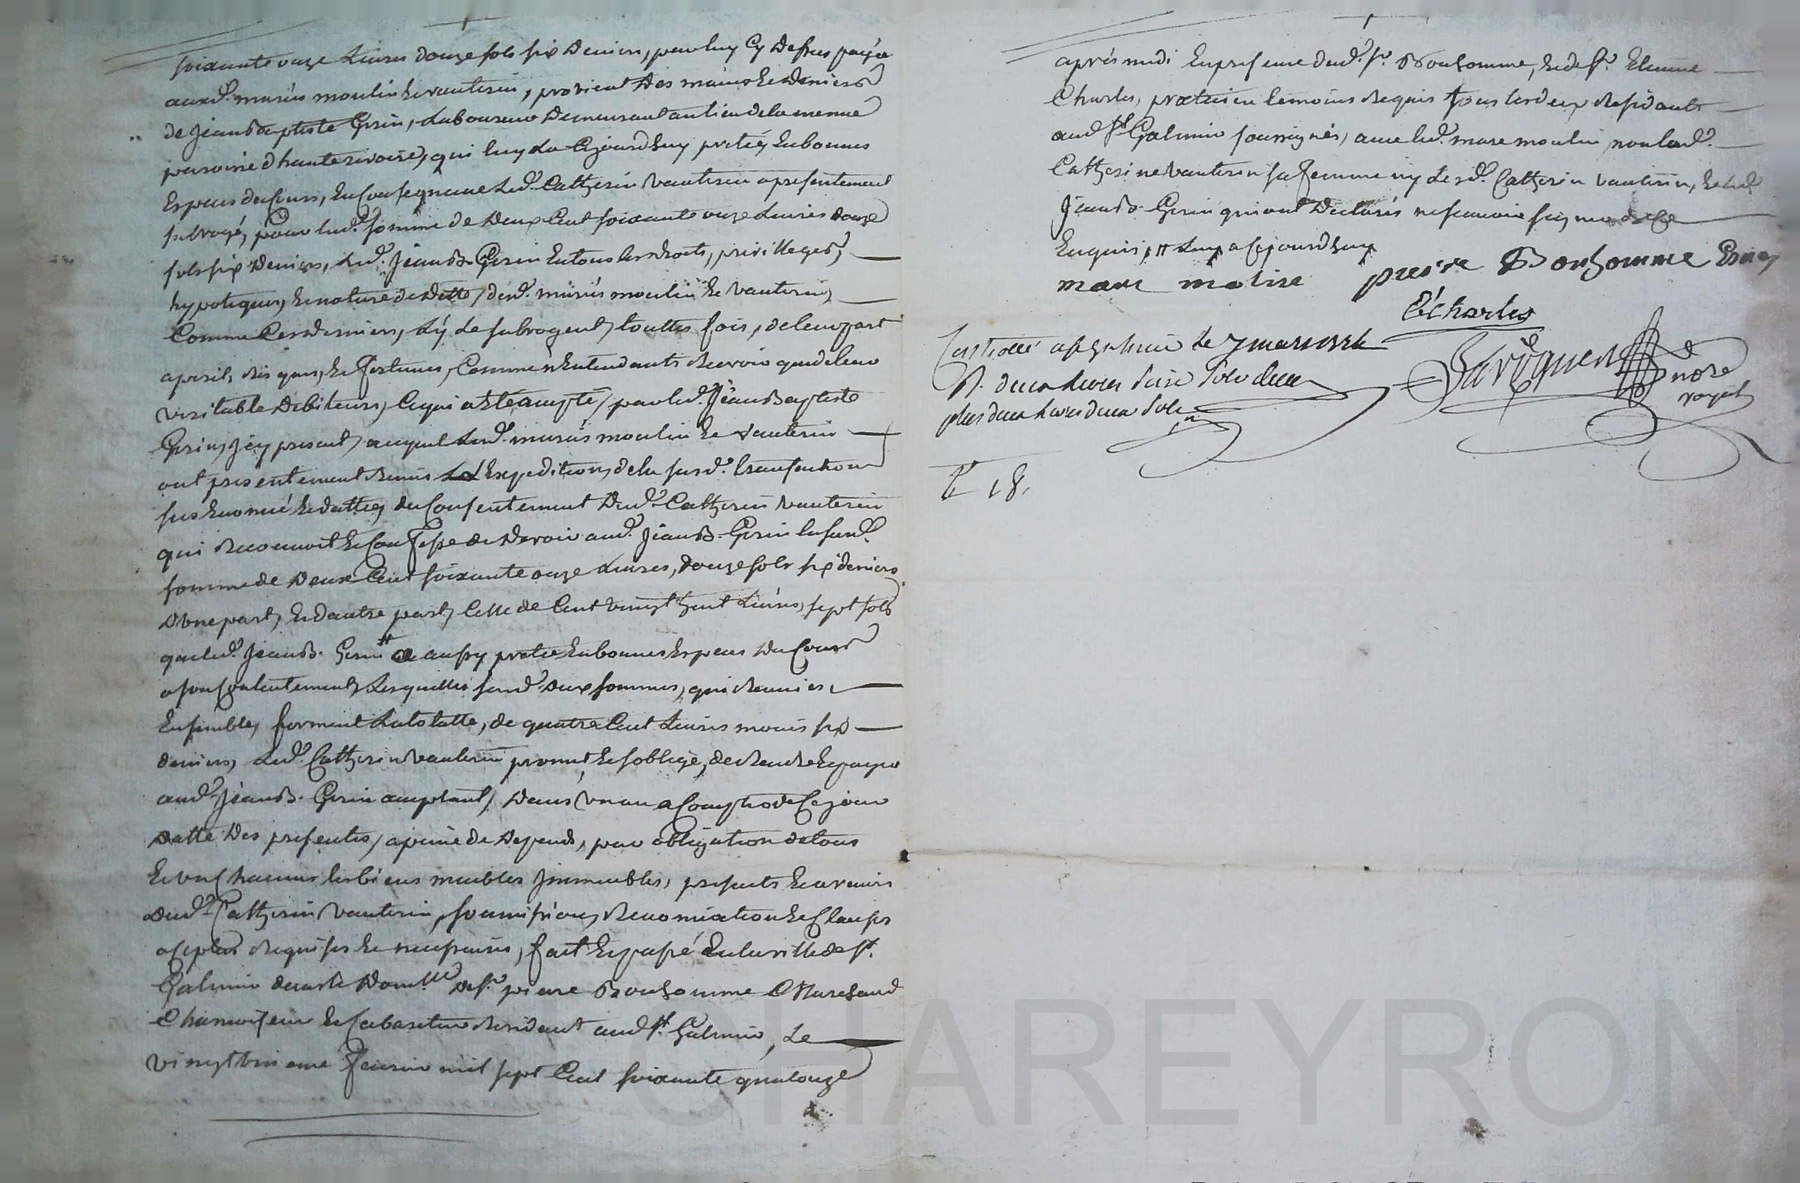 soixante onze Livres douze sols six Deniers, par luy Cy Dessus payée
auxd. mariés moulin Et vauterin, provient Des mains Et Deniers
de Jean Baptiste Gerin, Laboureur Demeurant au lieu de la menue
paroisse d'hauterivoire, qui luy La Cejourd'huy pretée, En bonnes
Especes du Cours, En Consequence Led. Catherin Vauterin a presentement
subrogé, pour lad. somme de Deux Cent soixante onze Livres douze
sols six Deniers, Led. Jean B. Gerin En tous les droits, privilleges,
hypoteques, Et nature de Dette, desd. mariés moulin Et Vauterin,
Comme Ces derniers, L'y Le subrogent, touttes fois, de leur part
a peril, risques, Et fortunes, Comme N'Entendants Recevoir que de leur
veritable Debiteur, Ce qui a Eté accepté, par led. Jean Baptiste
Gerin, Icy present, auquel Lesd. mariés moulin Et Vauterin
ont presentement Remis L'Expedition, de la susd. transaction
sus Enoncée Et dattée, du Consentement Dud. Catherin Vauterin
qui Reconnoit Et Confesse de Devoir aud. Jean B. Gerin la susd.
somme de Deux Cent soixante onze Livres, douze sols six deniers
D'une part, Et d'autre part, Celle de Cent vingt huit Livres, sept sols
que led. Jean B. Gerin a aussy pretée En bonnes Especes Du Cours
a son Contentement, Lesquelles susd. Deux sommes, qui Reunies
Ensembles, forment La totalle, de quatre Cent Livres moins six
deniers, Led. Catherin Vauterin promet, Et s'oblige, de Rendre Et payer
aud. Jean B. Gerin acceptant, Dans Un an a Compter de Ce jour
Datte Des presentes, a peine de Depends, par obligation de tous
Et Un Chacuns les biens meubles Immeubles, presents Et avenir
Dud. Catherin Vauterin, soumissions, Renonciation Et Clauses
a Ce plus Requises Et necessaires, fait Et passé En la ville de St.
Galmier dans le Domlle De Sr. pierre Bonhomme Marchand
Chamoiseur Et Cabaretier Residant aud. St. Galmier, Le
vingt troisieme Fevrier mil sept Cent soixante quatorze
après midi En presence dud. Sr. Bonhomme, Et de Sr. Etienne
Charles, praticien temoins Requis tous les deux Residants
aud. St. Galmier soussignés, avec led. marc moulin, non lad.
Catherine Vauterin sa femme ny Led. Catherin Vauterin, Et led.
Jean B. Gerin qui ont Declarés ne scavoir signer de Ce
Enquis, # Luy a Cejourd'huy
marc moline pierre Bonhomme
E Charles
Controllé a St Galmier le 7 mars 1774
R. deux livres seize sols
plus deux livres deux sols
nore
royal
E 18.
CHAREYRON